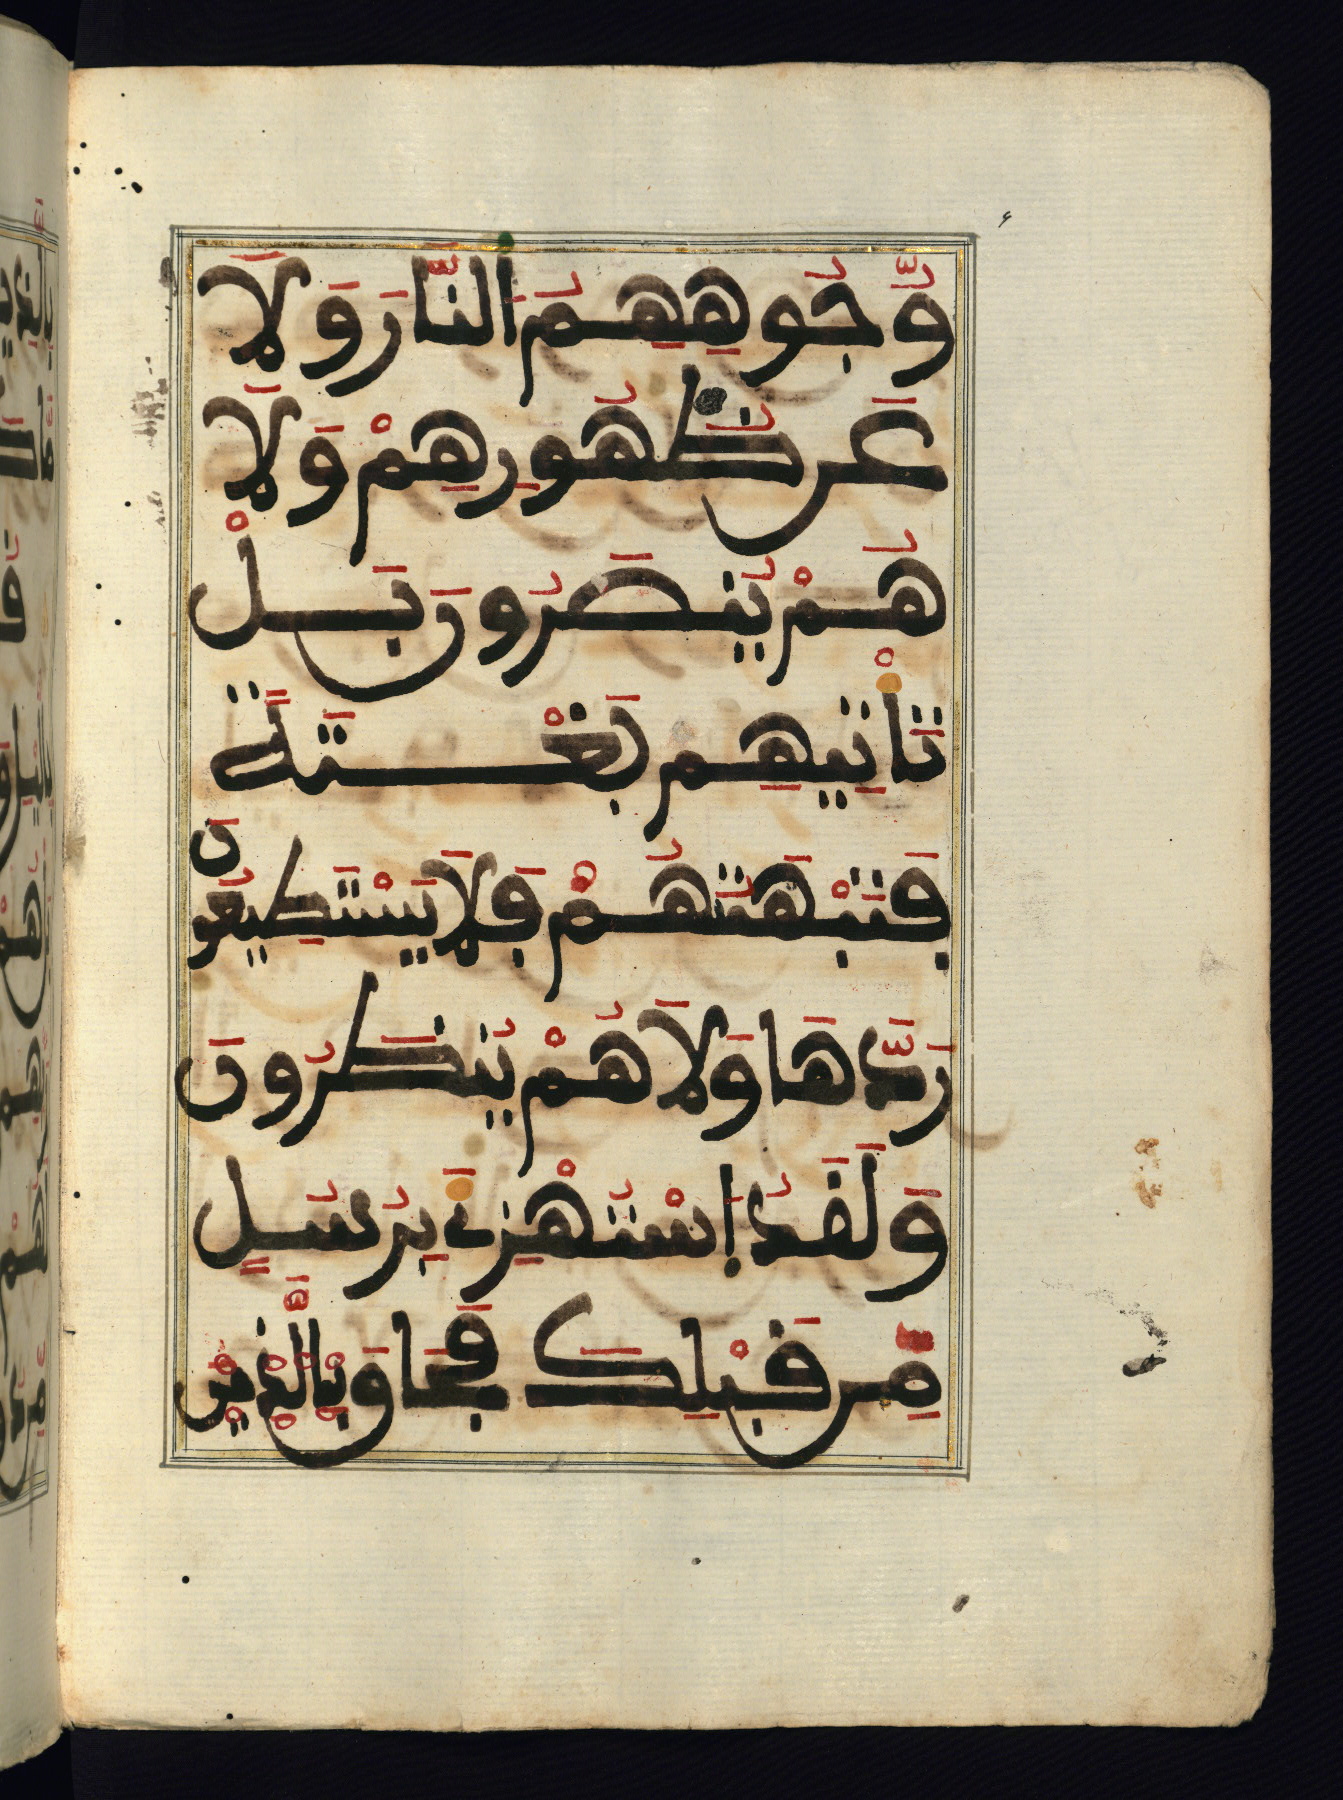 وُّجُوهِهِمُ النَّارَ وَلَا
عَن ظُهُورِهِمْ وَلَا
هُمْ يُنصَرُونَ بَلْ
تَأْتِيهِم بَغْتَةً
فَتَبْهَتُهُمْ فَلَا يَسْتَطِيعُونَ
رَدَّهَا وَلَا هُمْ يُنظَرُونَ
وَلَقَدُ اسْتُهْزِئَ بِرُسُلٍ
مِّن قَبْلِكَ فَحَاقَ بِالَّذِينَ